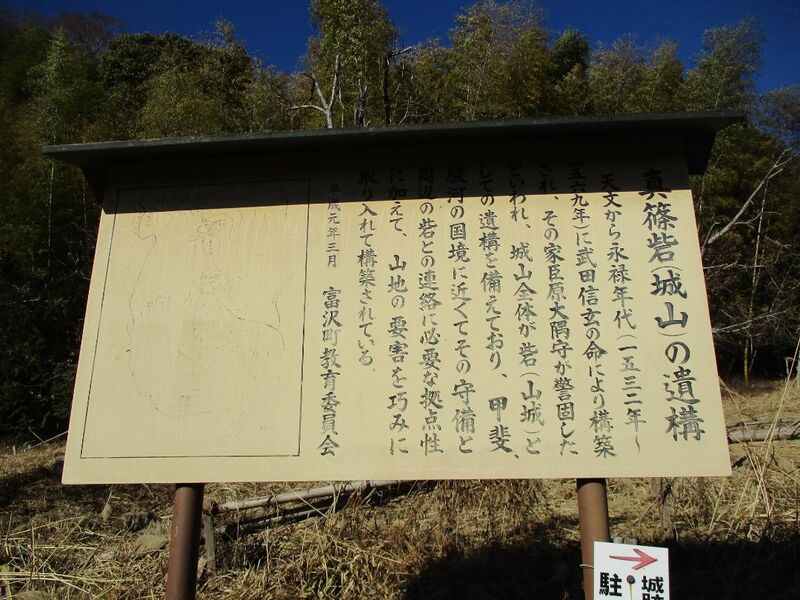 真篠砦(城山)の遺構
天文から永禄年代(一五三二年~
一五六九年)に武田信玄の命により構築
され、その家臣原大隅守が警固した
といわれ、城山全体が砦(山城)と
しての遺構を備えており、甲斐、
駿河の国境に近くてその守備と
周辺の砦との連絡に必要な拠点性
に加えて、山地の要害を巧みに
取り入れて構築されている。
平成元年三月 富沢町教育委員会
城跡
駐